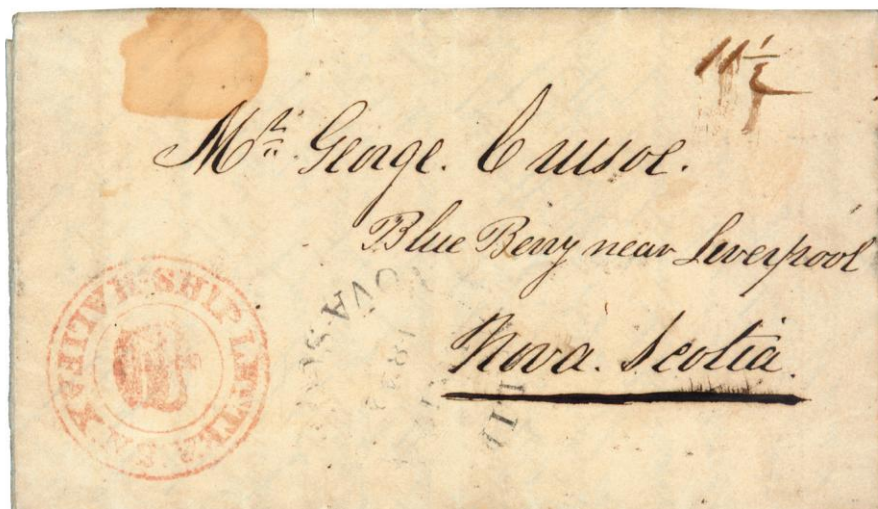 11½
Mr. George. Crusoe.
Blue Berry near Leverpool
Nova. Scotia.
SHIP LETTER HALIFAX
NOVA